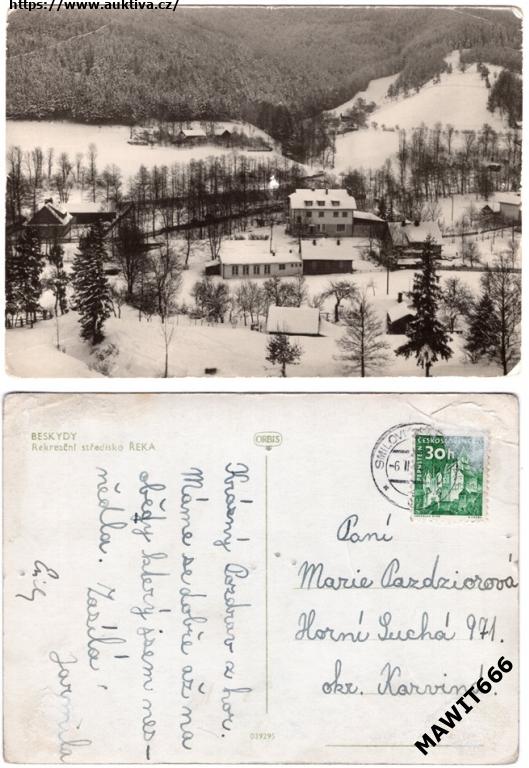 https://www.auktiva.cz/
BESKYDY
Rekreační středisko ŘEKA
ORBIS
Krásný Pozdrav z hor.
Máme se dobře až na
obědy který jsem nes-
nědla. Zasílá
Jarmila
039295
SMILOVI
-6.II
ČESKOSLOVENSKO
30h
Paní
Marie Pazdziorová
Horní Suchá 971.
okr. Karviná.
MAWIT666